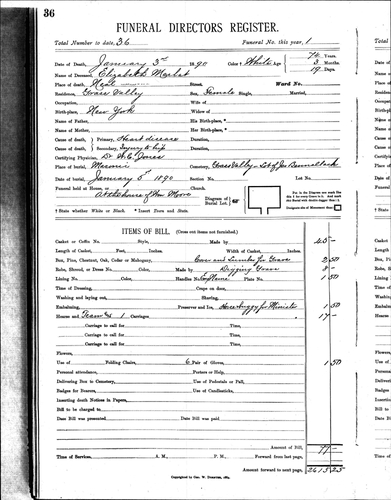 36
FUNERAL DIRECTORS REGISTER.
Total Number to date, 36 Funeral No. this year, 1
Date of Death, January 3rd 1890 Color † White Age 74 Years. 3 Months. 19 Days.
Name of Deceased, Elizabeth
Place of Death, Near Street, Ward.
Residence, Grass Valley Sex, Female Single, Married,
Occupation, Wife of
Birthplace, New York Widow of
Name of Father, His Birth-place, *
Name of Mother, Her Birth-place, *
Cause of Death, Primary, Heart disease Duration,
Secondary, Injury to hip Duration,
Certifying Physician, Dr. Jones
Place of burial, Masonic Cemetery, Grass Valley - Lot of
Date of burial, January 5th 1890 Section No. Lot No.
Funeral held at House, or At the house of Wm Moore Church.
Diagram of Burial Lot.
† State whether White or Black. * Insert Town and State.
ITEMS OF BILL. (Cross out items not furnished.)
Casket or Coffin No. Style, Made by 45-
Length of Casket, Feet, Inches. Width of Casket, Inches.
Box, Pine, Chestnut, Oak, Cedar or Mahogany, Box and Lumber for Grave 2 50
Robe, Shroud, or Dress No. Color, Made by Digging Grave 8-
Lining No. Color, Handles No. Plate No. 1 50
Time of Dressing, Coffin use on door,
Washing and laying out, Shaving,
Embalming, Preserver and Ice, Horse buggy for Minister 1 50
Hearse and Team 1 Carriages 17-
Carriage to call for Time,
Carriage to call for Time,
Carriage to call for Time,
Carriage to call for Time,
Flowers,
Use of Folding Chairs, 6 Pair of Gloves, 1 50
Personal attendance, Porters or Help,
Delivering Box to Cemetery, Use of Pedestals or Pall,
Badges for Bearers, Use of Candlesticks,
Inserting death Notices in Papers,
Bill to be charged to
Date Bill was presented Date Bill was paid
Amount of Bill, 77-
Time of Services, A. M., P. M. Forward from last page,
Amount forward to next page,